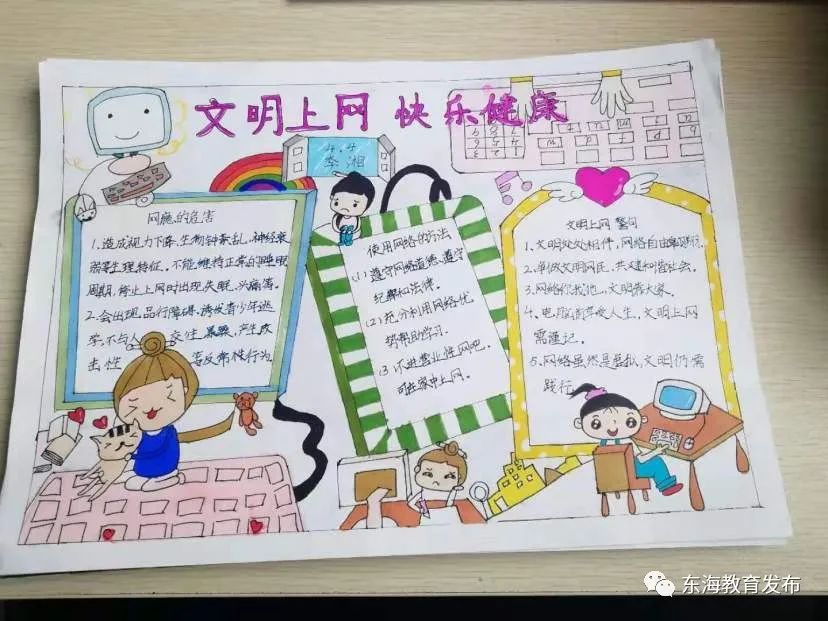 文明上网 快乐健康
4.4
李湘
网瘾的危害
1.造成视力下降.生物钟紊乱.神经衰
弱等生理特征.不能维持正常的睡眠
周期,停止上网时出现失眠,头痛等.
2.会出现品行障碍,诱发青少年逃
学,不与人交往暴躁,产生攻
击性 等反常性行为
使用网络的方法
(1)遵守网络道德、遵守
纪律和法律.
(2)充分利用网络优
势帮助学习.
(3)不进营业性网吧.
可在家中上网.
文明上网 警句
1.文明处处相伴,网络自由
2.争做文明网民,共建和谐社会.
3.网络你我他,文明靠大家.
4.电脑 人生,文明上网
需谨记.
5.网络虽然是虚拟,文明仍需
践行.
东海教育发布